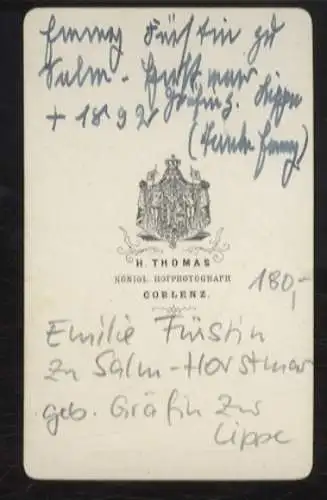 Emmy Fürstin zu
Salm-Horstmar
Gräfin z. Lippe
+ 1892
(Tante Emmy)
H. THOMAS
KÖNIGL. HOFPHOTOGRAPH
COBLENZ.
180,-
Emilie Fürstin
zu Salm-Horstmar
geb. Gräfin zur
Lippe